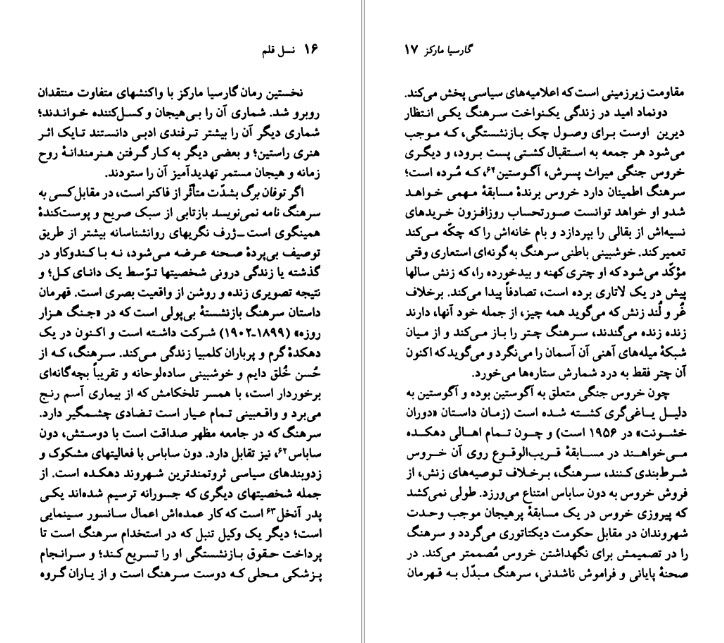 ۱۶ نسل قلم
نخستین رمان گارسیا مارکز با واکنشهای متفاوت منتقدان
روبرو شد. شماری آن را بی‌هیجان و کسل‌کننده خواندند؛
شماری دیگر آن را بیشتر ترفندی ادبی دانستند تایک اثر
هنری راستین؛ و بعضی دیگر به کار گرفتن هنرمندانهٔ روح
زمانه و هیجان مستمر تهدیدآمیز آن را ستودند.
اگر توفان برگ بشدّت متأثّر از فاکنر است، در مقابل کسی به
سرهنگ نامه نمی‌نویسد بازتابی از سبک صریح و پوست‌کندهٔ
همینگوی است–ژرف نگریهای روانشناسانه بیشتر از طریق
توصیف بی‌پردهٔ صحنه عرضه می‌شود، نه با کندوکاو در
گذشته یا زندگی درونی شخصیتها توّسط یک دانای کل؛ و
نتیجه تصویری زنده و روشن از واقعیت بصری است. قهرمان
داستان سرهنگ بازنشستهٔ بی‌پولی است که در «جنگ هزار
روزه» (۱۸۹۹ـ۱۹۰۲) شرکت داشته است و اکنون در یک
دهکدهٔ گرم و پرباران کلمبیا زندگی می‌کند. سرهنگ، که از
حُسن خُلق دایم و خوشبینی ساده‌لوحانه و تقریباً بچه‌گانه‌ای
برخوردار است، با همسر تلخکامش که از بیماری آسم رنج
می‌برد و واقعبینی تمام عیار است تضادی چشمگیر دارد.
سرهنگ که در جامعه مظهر صداقت است با دوستش، دون
ساباس۶۲، نیز تقابل دارد. دون ساباس با فعالیتهای مشکوک و
زدوبندهای سیاسی ثروتمندترین شهروند دهکده است. از
جمله شخصیتهای دیگری که جسورانه ترسیم شده‌اند یکی
پدر آنخل۶۳ است که کار عمده‌اش اعمال سانسور سینمایی
است؛ دیگر یک وکیل تنبل که در استخدام سرهنگ است تا
پرداخت حقوق بازنشستگی او را تسریع کند؛ و سرانجام
پزشکی محلی که دوست سرهنگ است و از یاران گروه
گارسیا مارکز ۱۷
مقاومت زیرزمینی است که اعلامیه‌های سیاسی پخش می‌کند.
دونماد امید در زندگی یکنواخت سرهنگ یکی انتظار
دیرین اوست برای وصول چک بازنشستگی، که موجب
می‌شود هر جمعه به استقبال کشتی پست برود، و دیگری
خروس جنگی میراث پسرش، آگوستین۶۴، که مُرده است؛
سرهنگ اطمینان دارد خروس برندهٔ مسابقهٔ مهمی خواهد
شدو او خواهد توانست صورتحساب روزافزون خریدهای
نسیه‌اش از بقالی را بپردازد و بام خانه‌اش را که چکّه می‌کند
تعمیرکند. خوشبینی باطنی سرهنگ به گونه‌ای استعاری وقتی
مؤکّد می‌شود که او چتری کهنه و بیدخورده را، که زنش سالها
پیش در یک لاتاری برده است، تصادفاً پیدا می‌کند. برخلاف
غُر و لُند زنش که می‌گوید همه چیز، از جمله خود آنها، دارند
زنده زنده می‌گندند، سرهنگ چتر را باز می‌کند و از میان
شبکهٔ میله‌های آهنی آن آسمان را می‌نگرد و می‌گوید که اکنون
آن چتر فقط به درد شمارش ستاره‌ها می‌خورد.
چون خروس جنگی متعلق به آگوستین بوده و آگوستین به
دلیل یاغی‌گری کشته شده است (زمان داستان «دوران
خشونت» در ۱۹۵۶ است) و چون تمام اهالی دهکده
می‌خواهند در مسابقهٔ قریب‌الوقوع روی آن خروس
شرط‌بندی کنند، سرهنگ، برخلاف توصیه‌های زنش، از
فروش خروس به دون ساباس امتناع می‌ورزد. طولی نمی‌کشد
که پیروزی خروس در یک مسابقهٔ پرهیجان موجب وحدت
شهروندان در مقابل حکومت دیکتاتوری می‌گردد و سرهنگ
را در تصمیمش برای نگهداشتن خروس مُصممتر می‌کند. در
صحنهٔ پایانی و فراموش ناشدنی، سرهنگ مبدّل به قهرمان